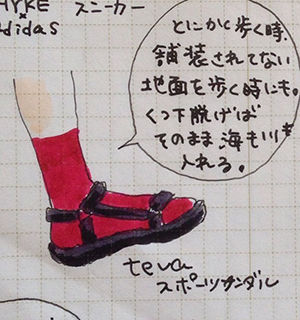 HYKE スニーカー
×
adidas
とにかく歩く時、
舗装されてない
地面を歩く時にも。
くつ下脱げば
そのまま海も川も
入れる。
teva
スポーツサンダル